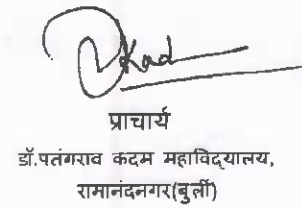 प्राचार्य
डॉ.पतंगराव कदम महाविद्यालय,
रामानंदनगर(बुर्ली)